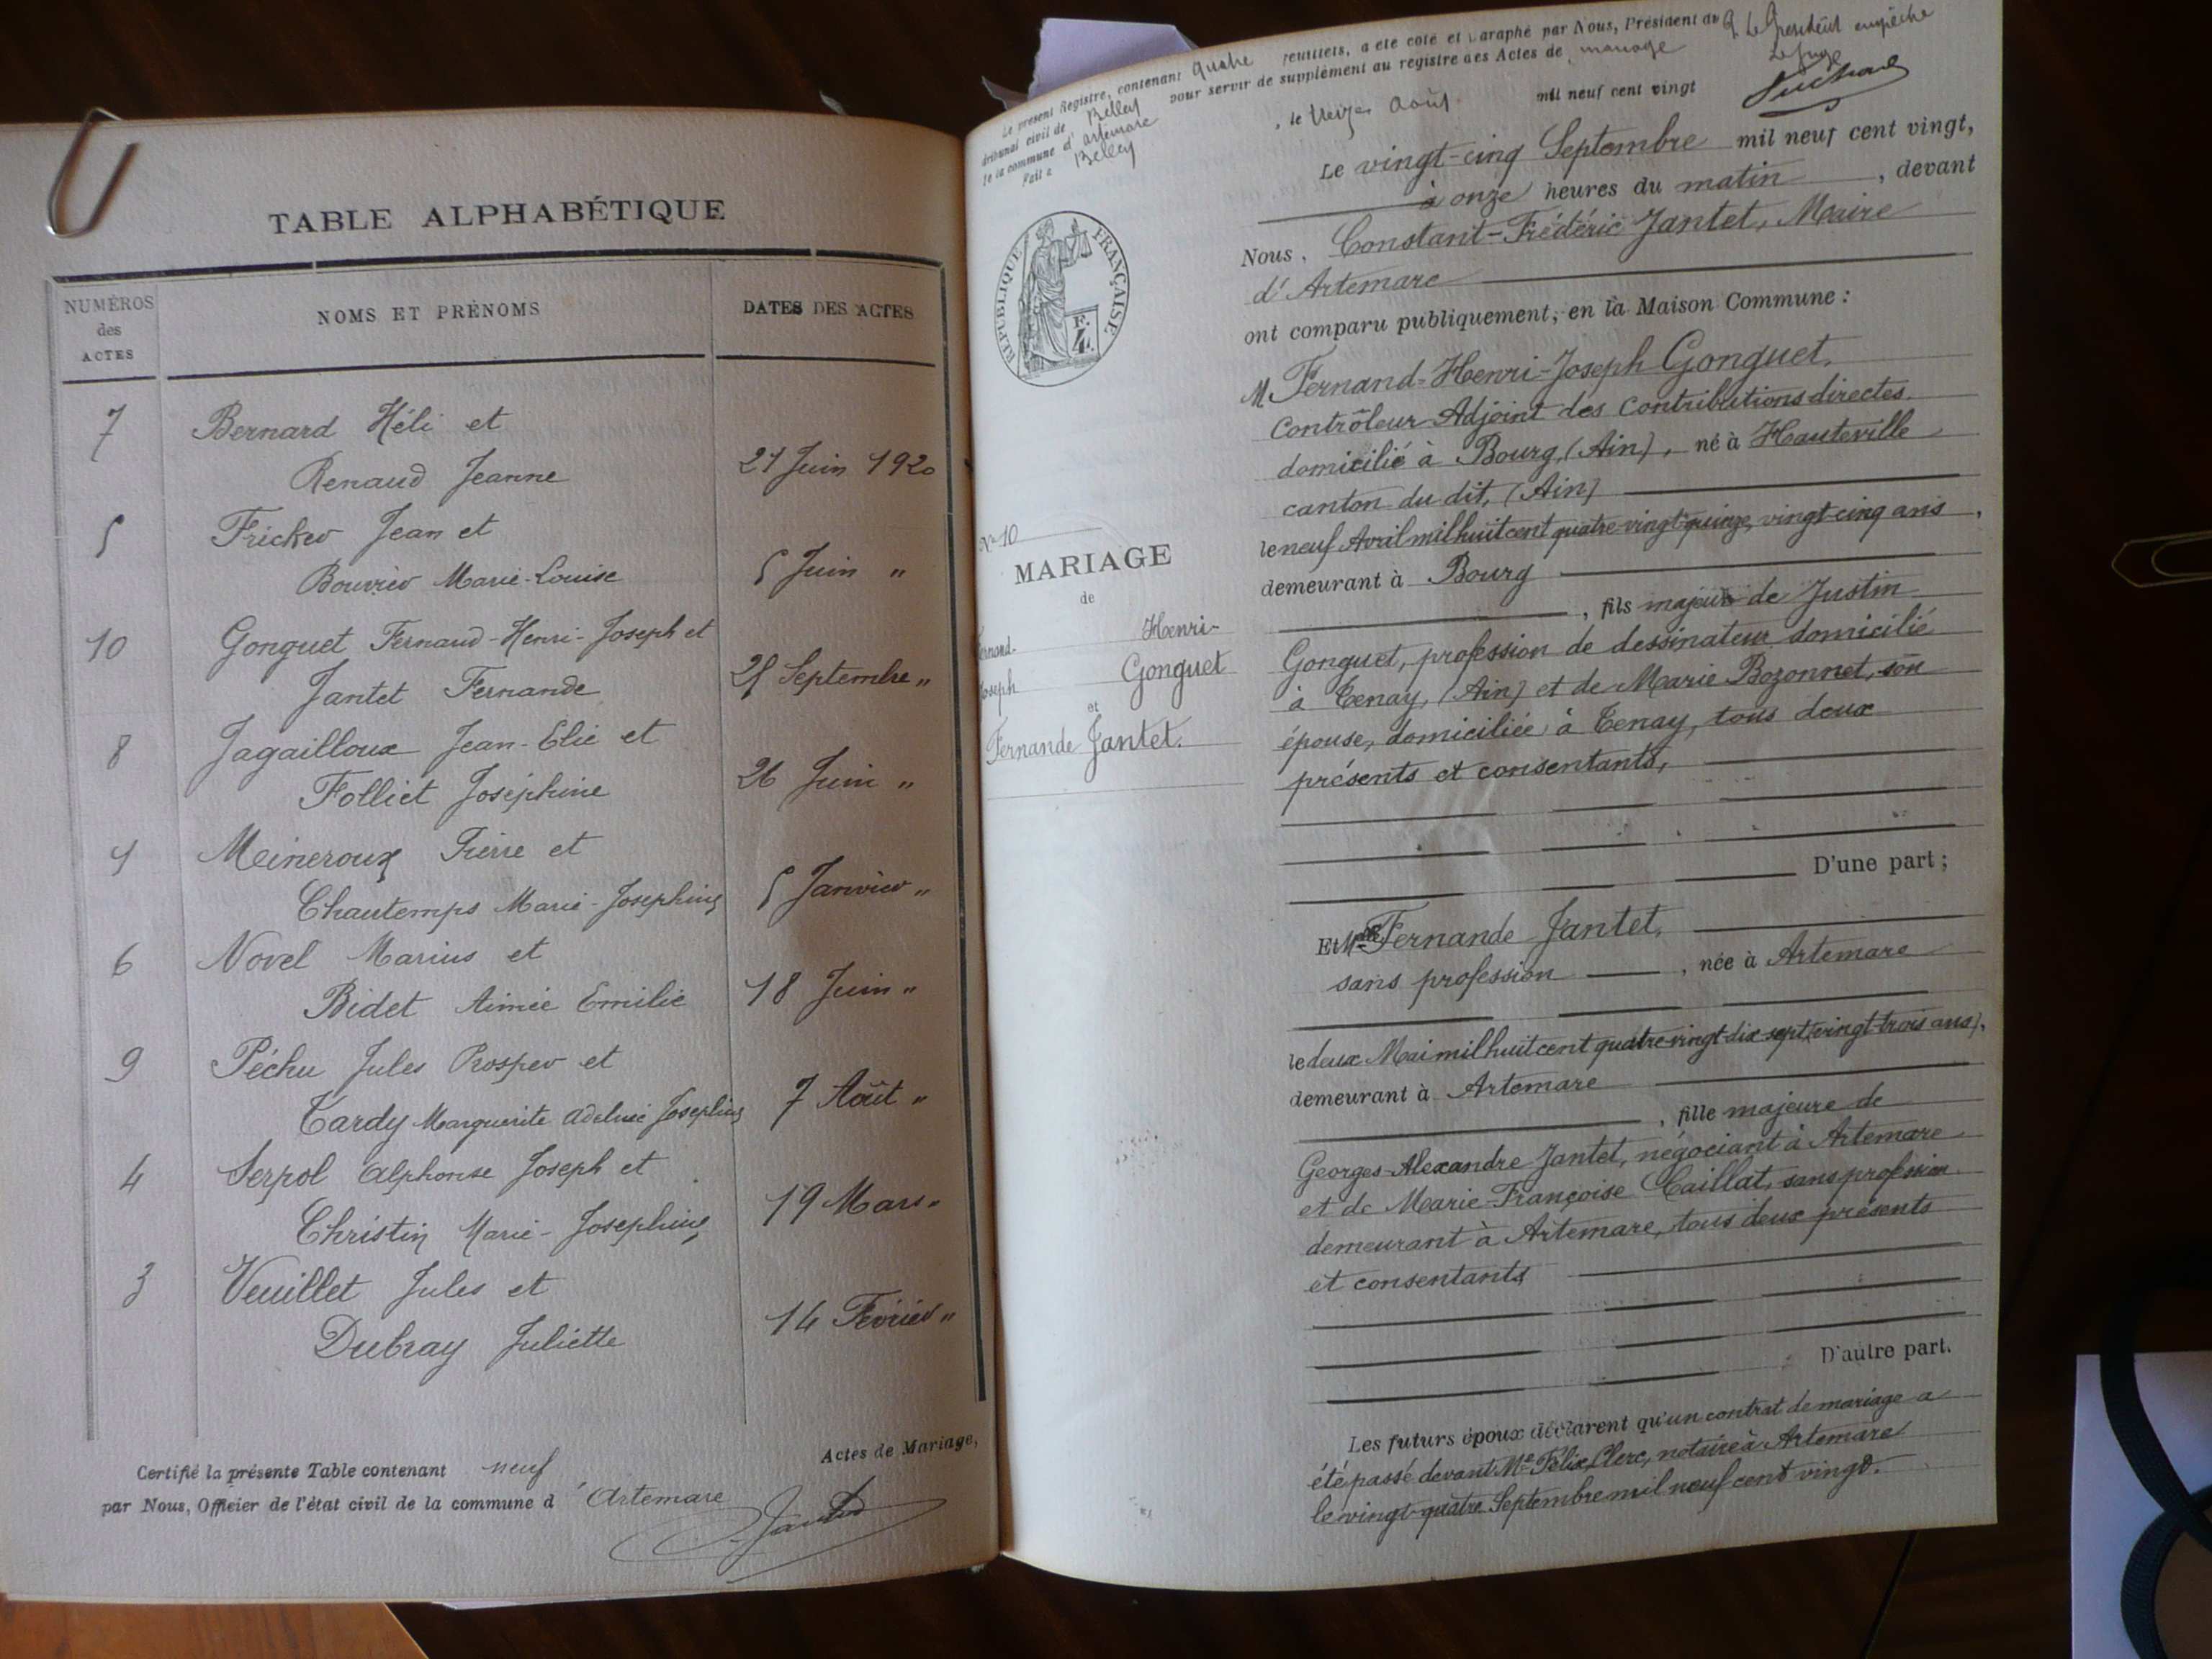 TABLE ALPHABÉTIQUE
NUMÉROS
des
ACTES
NOMS ET PRÉNOMS
DATES DES ACTES
7 Bernard Héli et
Renaud Jeanne 21 Juin 1920
5 Fricker Jean et
Bouvier Marie-Louise 5 Juin "
10 Gonguet Fernand-Henri-Joseph et
Jantet Fernande 25 Septembre "
8 Jagailloux Jean-Elie et
Folliet Joséphine 26 Juin "
Meineroux Pierre et
Chautemps Marie-Josephine 5 Janvier "
6 Novel Marius et
Bidet Aimée Emilie 18 Juin "
9 Péchu Jules Prosper et
Tardy Marguerite Adeline Josephine 7 Août "
4 Serpol Alphonse Joseph et
Christin Marie-Josephine 19 Mars "
3 Veuillet Jules et
Dubray Juliette 14 Février "
Certifié la présente Table contenant neuf Actes de Mariage,
par Nous, Officier de l'état civil de la commune d'Artemare
Jantet
Le présent Registre, contenant quatre feuillets, a été coté et paraphé par Nous, Président du
tribunal civil de Belley pour servir de supplément au registre des Actes de mariage
de la commune d'Artemare
Fait à Belley, le treize Août mil neuf cent vingt
P. Le Président empêché
Le Juge
RÉPUBLIQUE FRANÇAISE
F.
4.
Le vingt-cinq Septembre mil neuf cent vingt,
à onze heures du matin, devant
Nous, Constant-Frédéric Jantet, Maire
d'Artemare
ont comparu publiquement, en la Maison Commune :
M Fernand-Henri-Joseph Gonguet,
Contrôleur Adjoint des Contributions directes,
domicilié à Bourg, (Ain), né à Hauteville
canton du dit, (Ain)
le neuf Avril mil huit cent quatre-vingt-quinze, vingt-cinq ans,
demeurant à Bourg
, fils majeur de Justin
Gonguet, profession de dessinateur domicilié
à Tenay, (Ain) et de Marie Bozonnet, son
épouse, domiciliée à Tenay, tous deux
présents et consentants,
D'une part ;
No 10
MARIAGE
de
Fernand-Henri-
Joseph Gonguet
et
Fernande Jantet.
Et Mlle Fernande Jantet,
sans profession, née à Artemare
le deux Mai mil huit cent quatre-vingt-dix-sept, (vingt-trois ans),
demeurant à Artemare
, fille majeure de
Georges-Alexandre Jantet, négociant à Artemare
et de Marie-Françoise Caillat, sans profession
demeurant à Artemare, tous deux présents
et consentants
D'autre part.
Les futurs époux déclarent qu'un contrat de mariage a
été passé devant Me Félix Clerc, notaire à Artemare
le vingt-quatre Septembre mil neuf cent vingt.